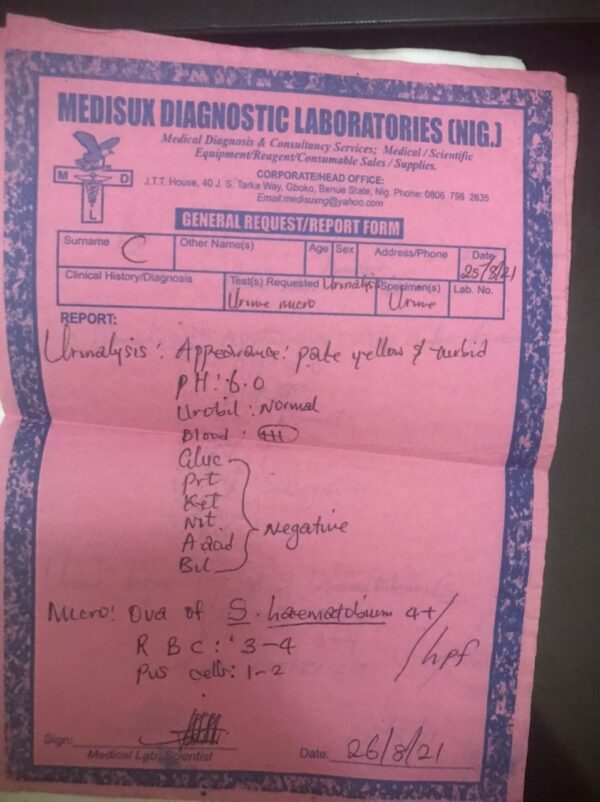 MEDISUX DIAGNOSTIC LABORATORIES (NIG.)
Medical Diagnosis & Consultancy Services; Medical / Scientific
Equipment/Reagent/Consumable Sales / Supplies.
M D
L
CORPORATE/HEAD OFFICE:
J.T.T. House, 40 J. S. Tarka Way, Gboko, Benue State, Nig. Phone: 0806 798 2635
Email:medisuxng@yahoo.com
GENERAL REQUEST/REPORT FORM
Surname C Other Name(s) Age Sex Address/Phone Date 25/8/21
Clinical History/Diagnosis Test(s) Requested Urinalysis Specimen(s) Lab. No.
Urine micro Urine
REPORT:
Urinalysis: Appearance: pale yellow & turbid
PH: 6.0
Urobil: Normal
Blood: +++
Gluc
Prt
Ket
Nit.
Negative
A acid
Bil
Micro: Ova of S. haematobium 4+
R B C: 3-4
/hpf
Pus cells: 1-2
Sign:
Medical Lab. Scientist
Date: 26/8/21